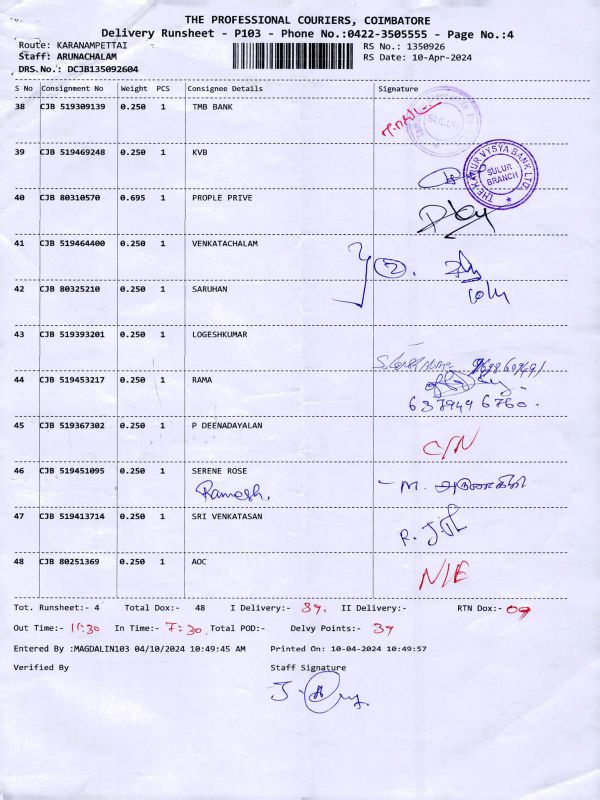 THE PROFESSIONAL COURIERS, COIMBATORE
Delivery Runsheet - P103 - Phone No.:0422-3505555 - Page No.:4
Route: KARANAMPETTAI RS No.: 1350926
Staff: ARUNACHALAM RS Date: 10-Apr-2024
DRS.No.: DCJB135092604
S No Consignment No Weight PCS Consignee Details Signature
38 CJB 519309139 0.250 1 TMB BANK
SULUR
39 CJB 519469248 0.250 1 KVB
THE KARUR VYSYA BANK LTD. SULUR BRANCH
40 CJB 80310570 0.695 1 PROPLE PRIVE
41 CJB 519464400 0.250 1 VENKATACHALAM
2.
42 CJB 80325210 0.250 1 SARUHAN
43 CJB 519393201 0.250 1 LOGESHKUMAR
44 CJB 519453217 0.250 1 RAMA
6379496760.
45 CJB 519367302 0.250 1 P DEENADAYALAN
C/N
46 CJB 519451095 0.250 1 SERENE ROSE
Ramesh, M.
47 CJB 519413714 0.250 1 SRI VENKATASAN
48 CJB 80251369 0.250 1 AOC
N/E
Tot. Runsheet:- 4 Total Dox:- 48 I Delivery:- 39. II Delivery:- RTN Dox:- 09
Out Time:- 11:30 In Time:- 7:30. Total POD:- Delvy Points:- 39
Entered By :MAGDALIN103 04/10/2024 10:49:45 AM Printed On: 10-04-2024 10:49:57
Verified By Staff Signature